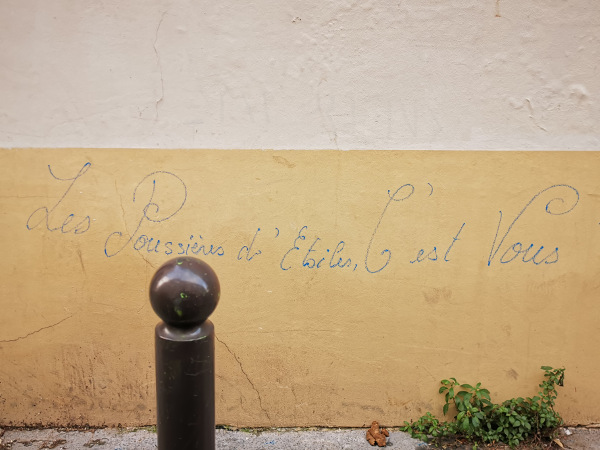 Les Poussières d'Etoiles, C'est Vous